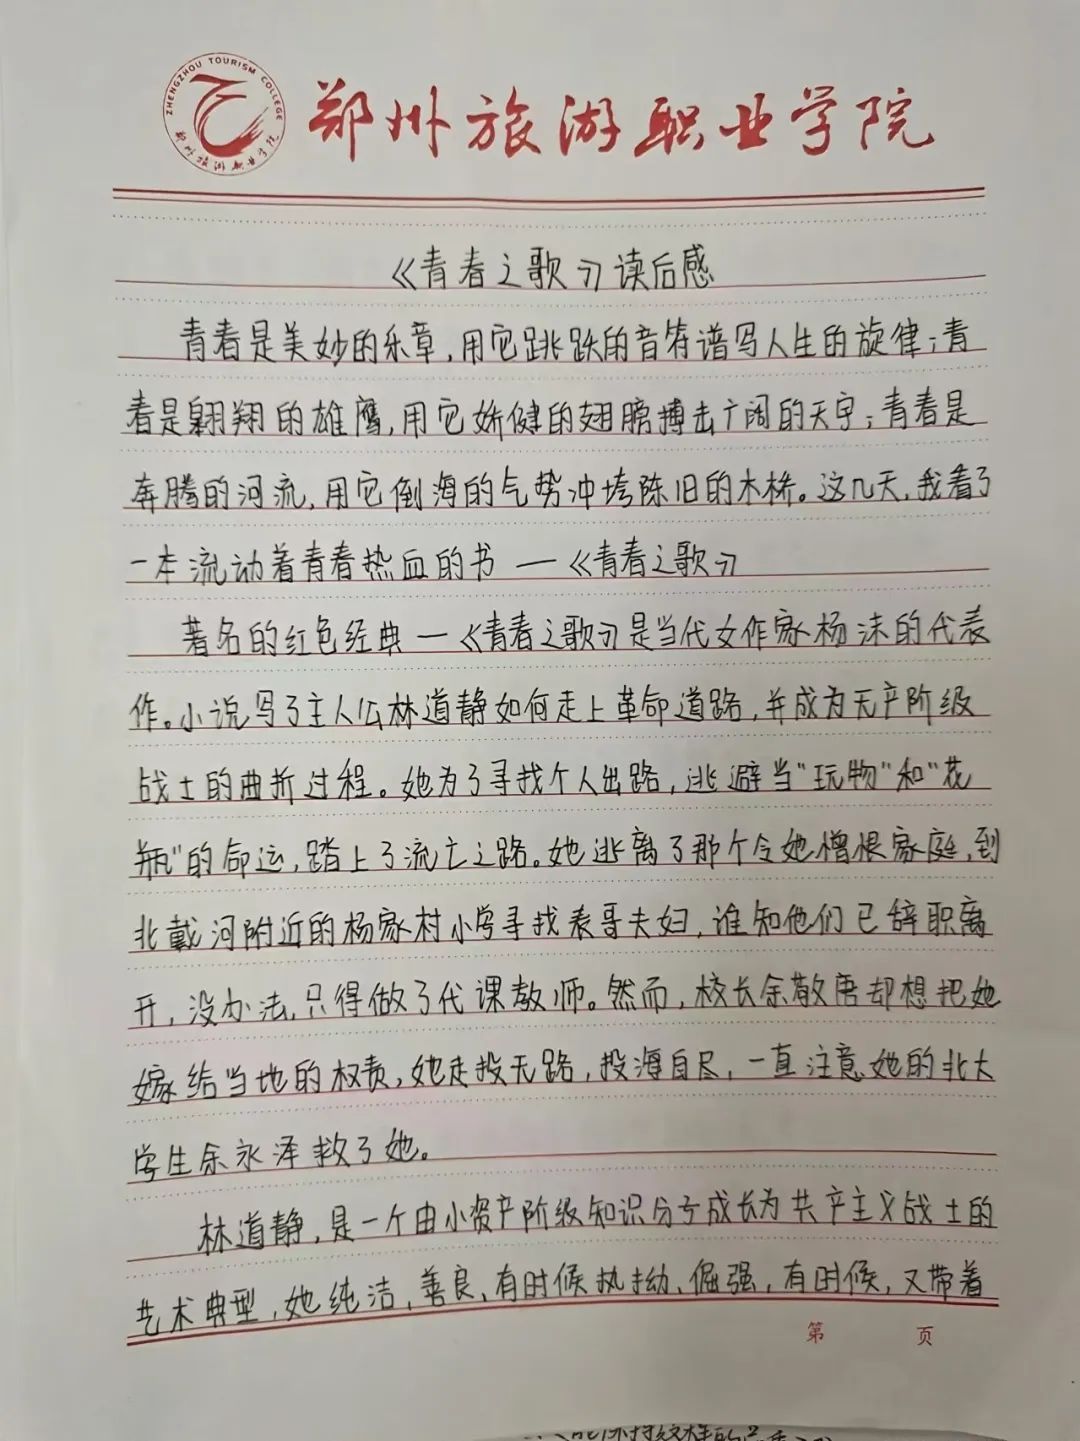 ZHENGZHOU TOURISM COLLEGE
郑州旅游职业学院
郑州旅游职业学院
《青春之歌》读后感
青春是美妙的乐章,用它跳跃的音符谱写人生的旋律;青
春是翱翔的雄鹰,用它矫健的翅膀搏击广阔的天宇;青春是
奔腾的河流,用它倒海的气势冲垮陈旧的木桥。这几天,我看了
一本流动着青春热血的书—《青春之歌》
著名的红色经典—《青春之歌》是当代女作家杨沫的代表
作。小说写了主人公林道静如何走上革命道路,并成为无产阶级
战士的曲折过程。她为了寻找个人出路,逃避当"玩物"和"花
瓶"的命运,踏上了流亡之路。她逃离了那个令她憎恨家庭,到
北戴河附近的杨家村小学寻找表哥夫妇,谁知他们已辞职离
开,没办法,只得做了代课教师。然而,校长余敬唐却想把她
嫁给当地的权贵,她走投无路,投海自尽,一直注意她的北大
学生余永泽救了她。
林道静,是一个由小资产阶级知识分子成长为共产主义战士的
艺术典型,她纯洁,善良,有时候执拗、倔强,有时候,又带着
第 页